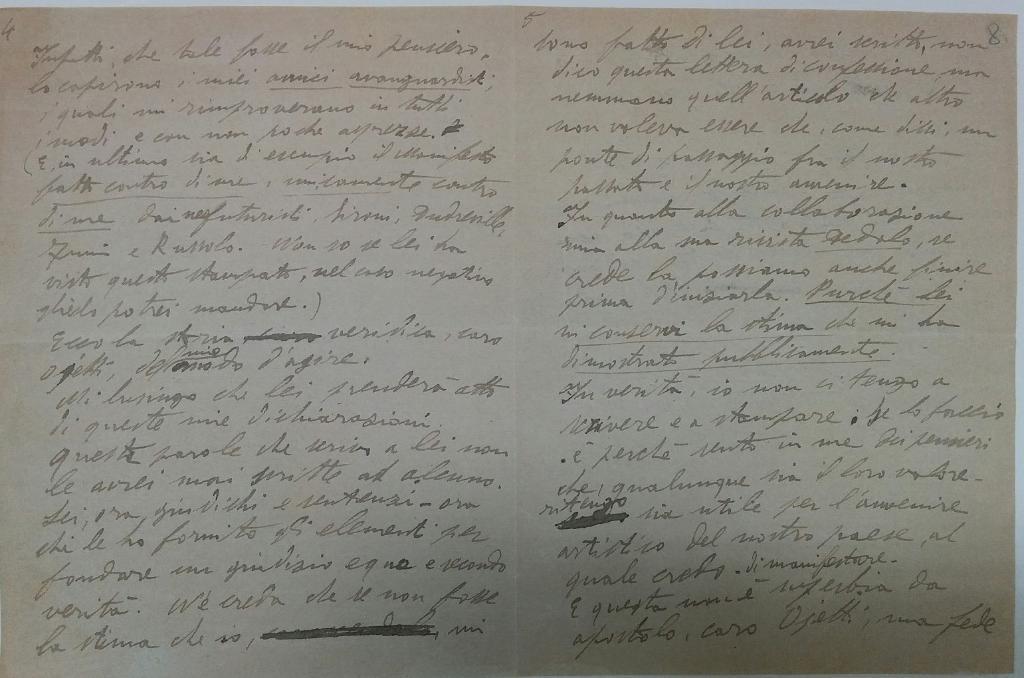 4
Infatti, che tale fosse il mio pensiero,
lo capirono i miei amici avanguardisti,
i quali mi rimproverano in tutti
i modi e con non poche asprezze.
(E in ultimo sia di esempio il Manifesto
fatto contro di me, unicamente contro
di me dai neofuturisti, Sironi, Dudreville,
Funi e Russolo. Non so se lei ha
visto questo stampato, nel caso negativo
glielo potrei mandare.)
Ecco la storia veridica, caro
Ojetti, del mio modo d'agire.
Mi lusingo che lei prenderà atto
di queste mie dichiarazioni,
queste parole che scrivo a lei non
le avrei mai scritte ad alcuno.
Lei, ora, giudichi e sentenzi - ora
che le ho fornito gli elementi per
fondare un giudizio equo e secondo
verità. Nè creda che se non fosse
la stima che io, mi
5
8
sono fatto di lei, avrei scritto, non
dico questa lettera di confessione, ma
nemmeno quell'articolo che altro
non voleva essere che, come dissi, un
ponte di passaggio fra il nostro
passato e il nostro avvenire.
In quanto alla collaborazione
mia alla sua rivista Dedalo, se
crede la possiamo anche finire
prima d'iniziarla. Purché lei
mi conservi la stima che mi ha
dimostrato pubblicamente.
In verità, io non ci tengo a
scrivere e a stampare. Se lo faccio
è perché sento in me dei pensieri
che, qualunque sia il loro valore -
ritengo sia utile per l'avvenire
artistico del nostro paese, al
quale credo - di manifestare.
E questa non è superbia da
apostolo, caro Ojetti, ma fede